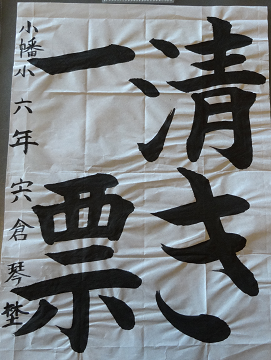 清き
一票
小幡小六年宍倉琴埜